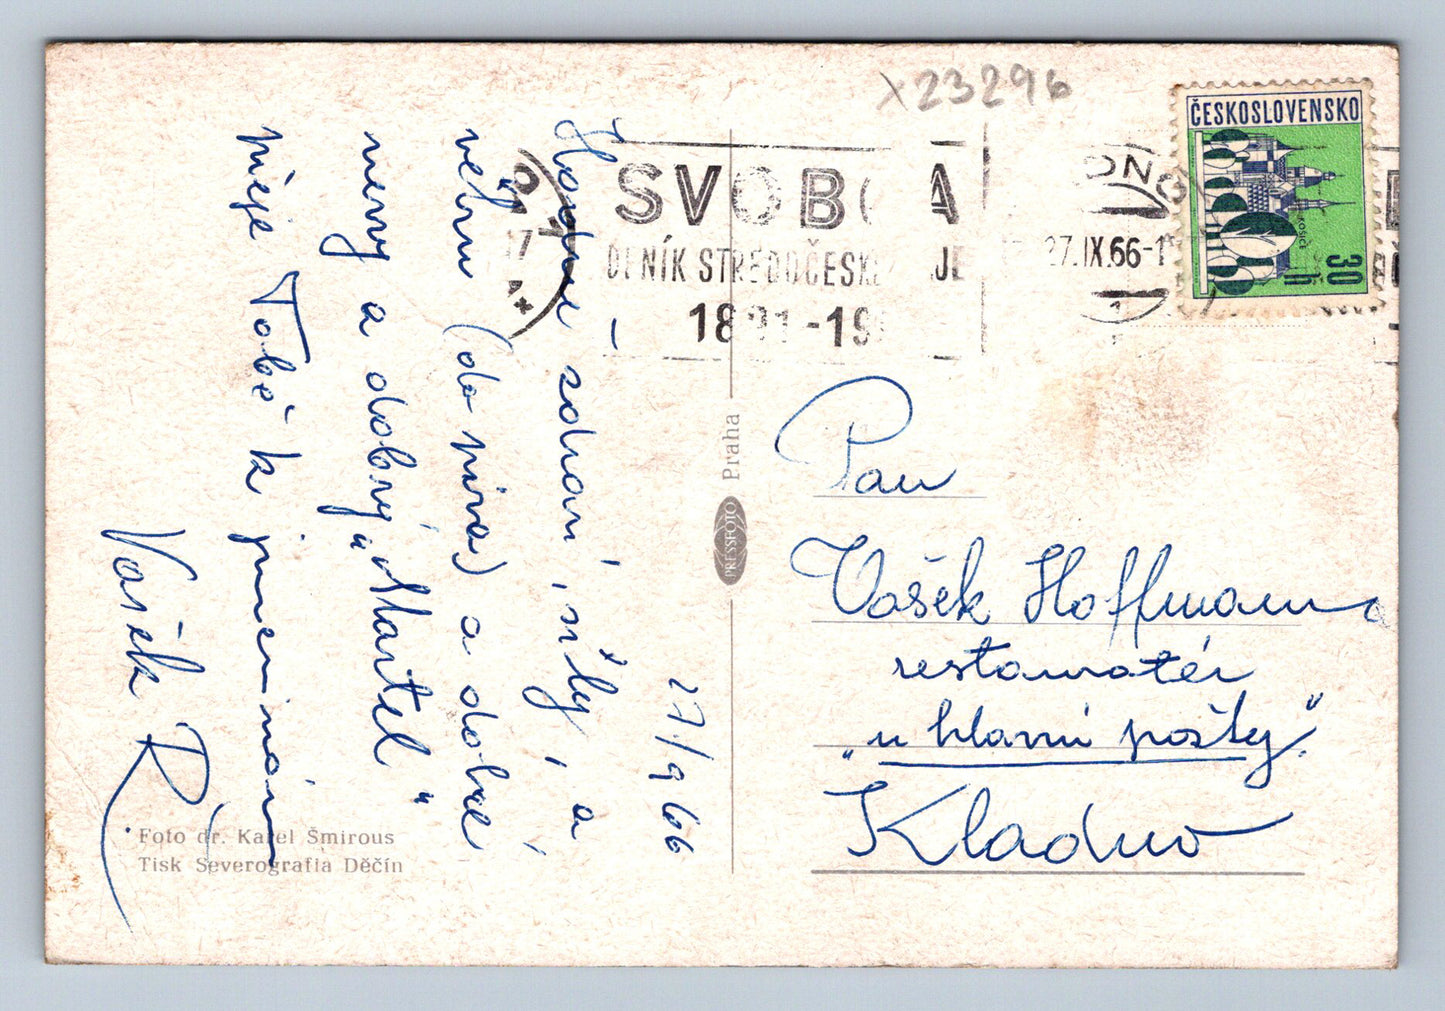 x23296
ČESKOSLOVENSKO
30
h
SVOBODA
DENÍK STŘEDOČESKÉHO KRAJE
1891-19
27.IX.66-1
Praha
PRESSFOTO
27/9 66
Hodně zdraví, síly, a
větru (do piva) a dobré
nervy a dobrý „Martel“
přeje Tobě k jmeninám
Vašek R.
Pan
Vašek Hoffmann
restauratér
„u hlavní pošty“
Kladno
Foto dr. Karel Šmirous
Tisk Severografia Děčín